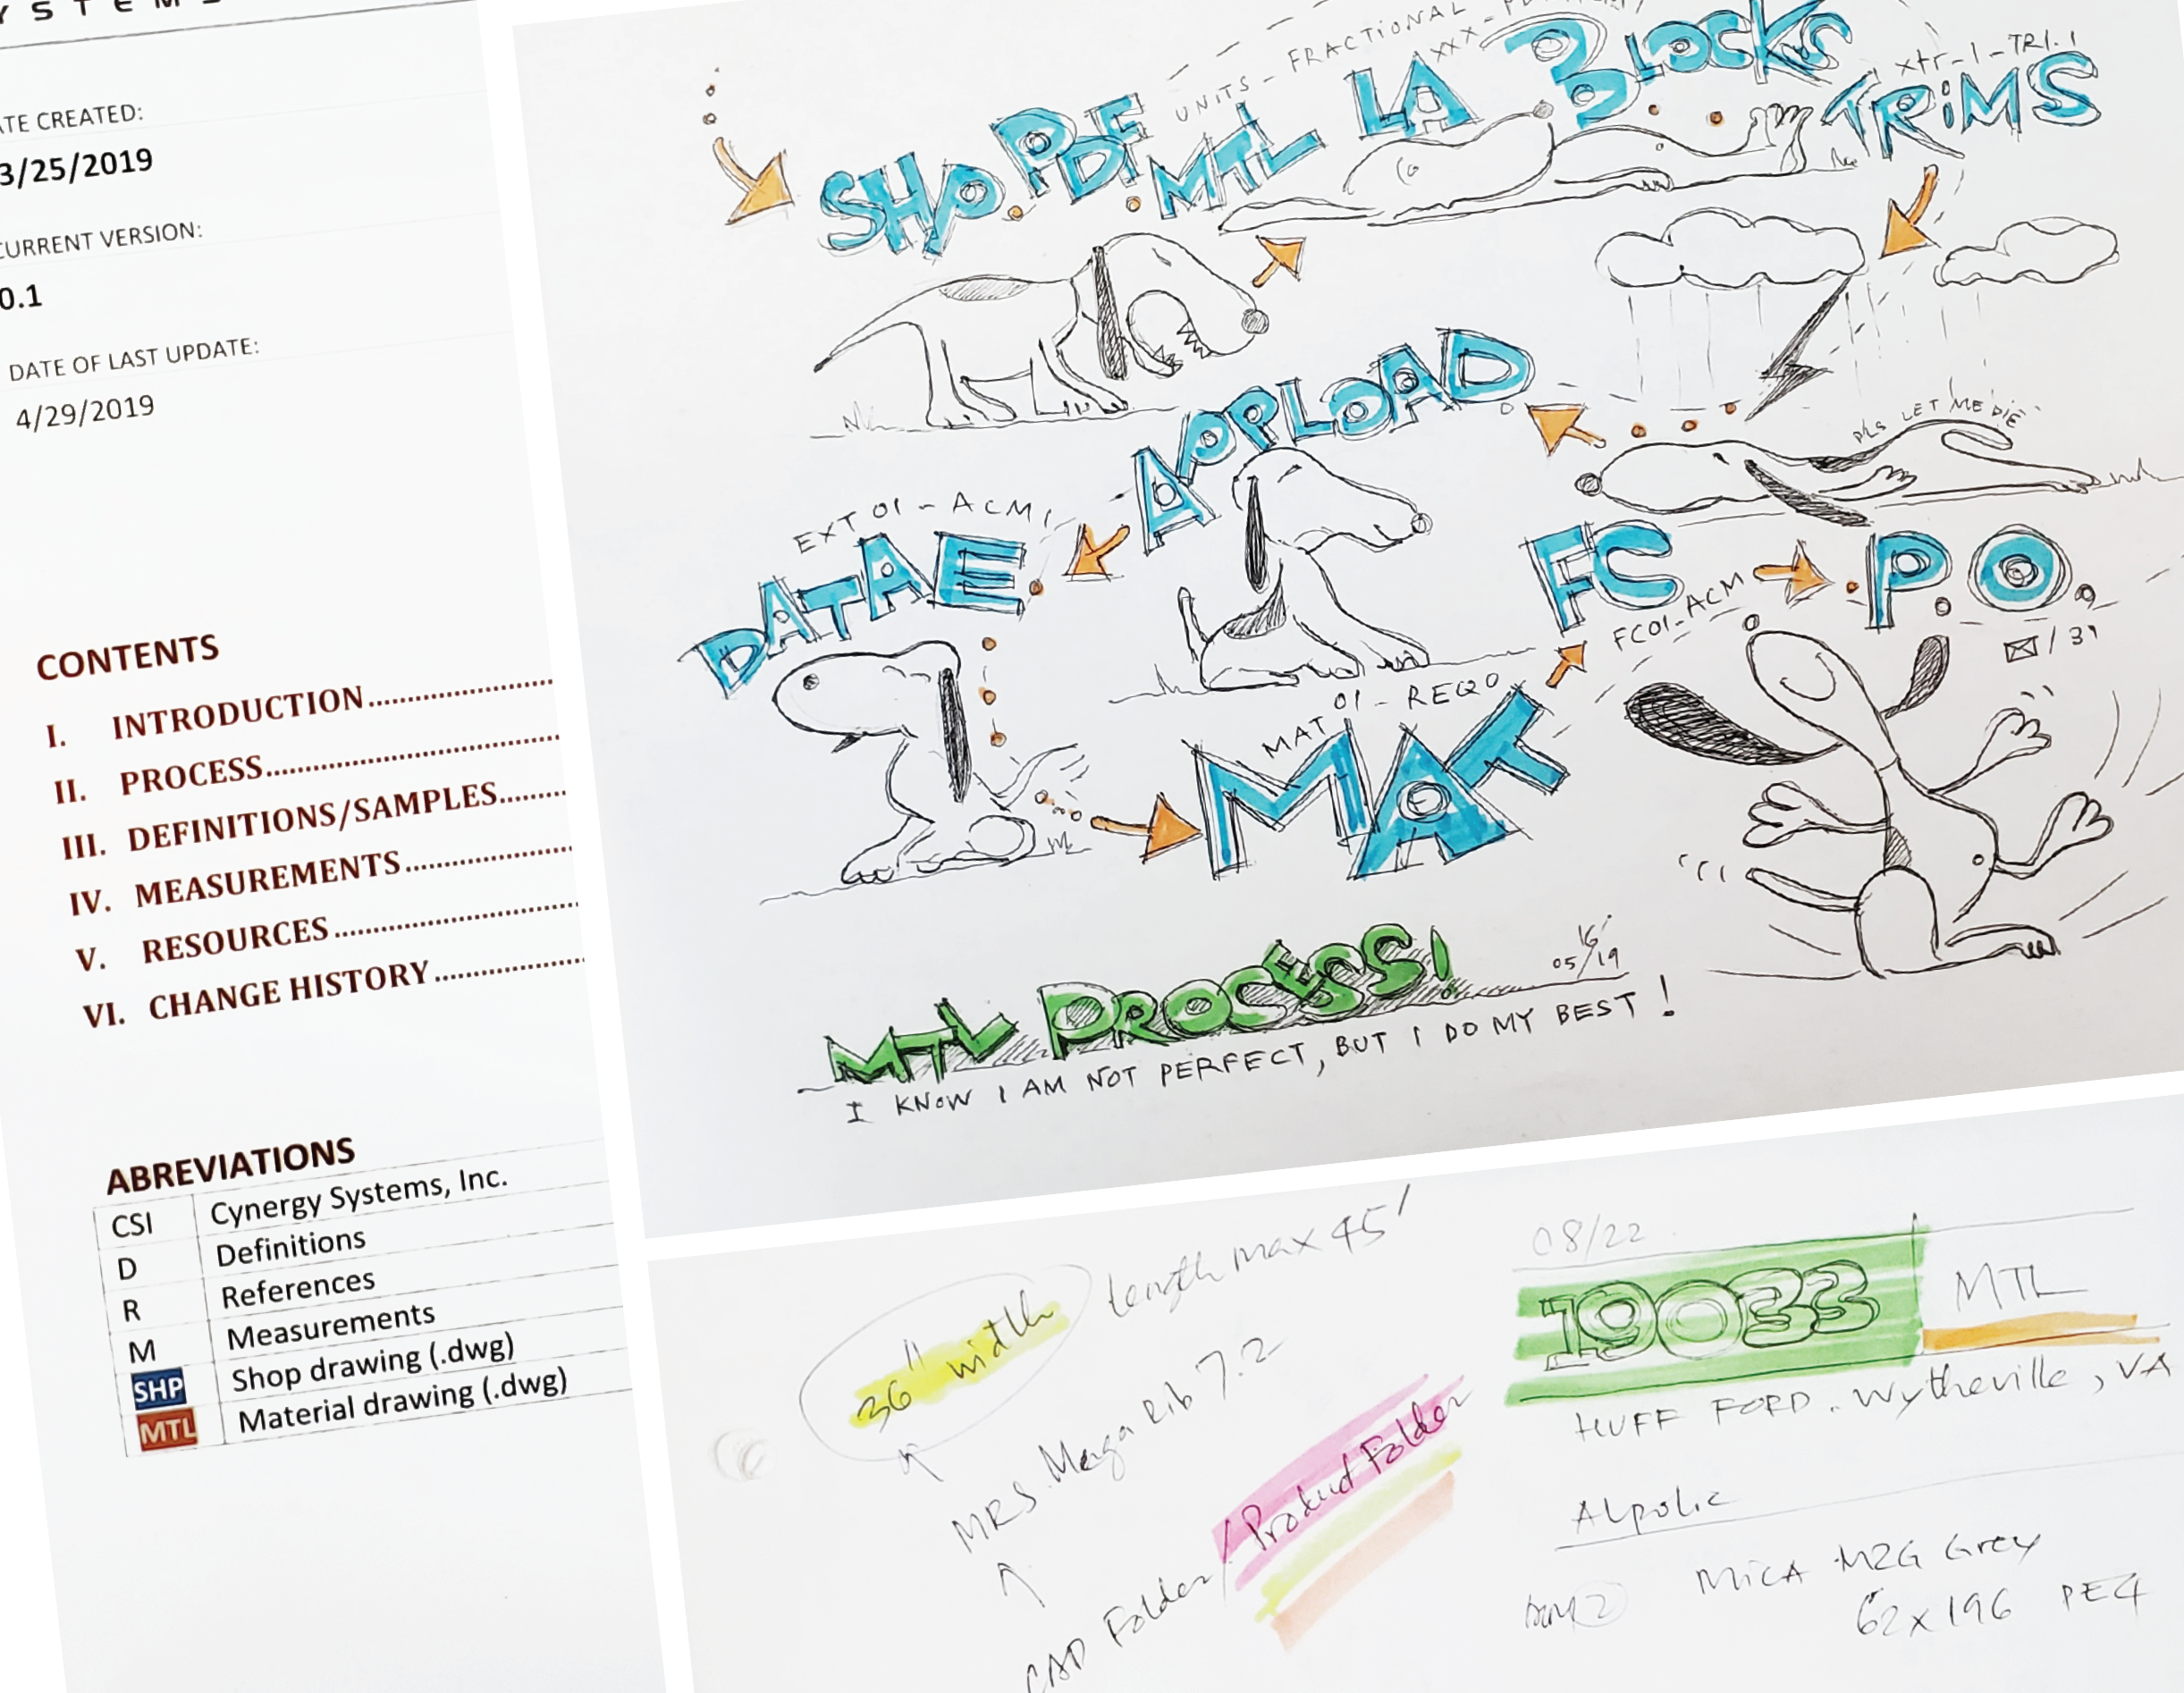 YSTEMS
ATE CREATED:
3/25/2019
CURRENT VERSION:
0.1
DATE OF LAST UPDATE:
4/29/2019
CONTENTS
I. INTRODUCTION
II. PROCESS
III. DEFINITIONS/SAMPLES
IV. MEASUREMENTS
V. RESOURCES
VI. CHANGE HISTORY
ABREVIATIONS
CSI Cynergy Systems, Inc.
D Definitions
R References
M Measurements
SHP Shop drawing (.dwg)
MTL Material drawing (.dwg)
UNITS - FRACTIONAL
XXX
xtr-1-TRI.1
SHP.PDF.MTL LA BLOCKS TRIMS
PLS LET ME DIE
APPLOAD
EXT 01 - ACM1
DATAE.
MAT 01 - REQO
MAT
FC
FC01-ACM
.P.O.
/ 3"
MTL PROCESS!
16
05/19
I KNOW I AM NOT PERFECT, BUT I DO MY BEST!
36" width
Length max 45'
MRS. Mega Rib 7.2
CAD Folder / Product Folder
08/22
19033 MTL
HUFF FORD. Wytheville, VA
Alpolic
MICA M2G Grey
62x196 PE4